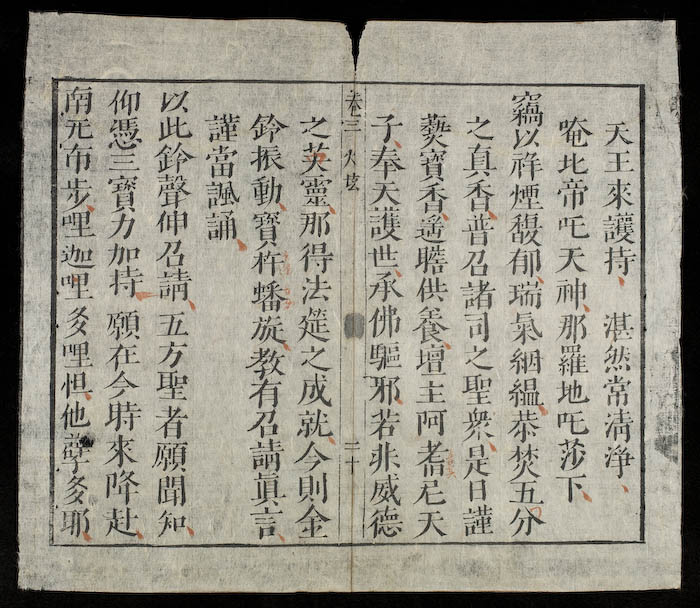 天王來護持、湛然常清淨、
唵北帝吒天神、那羅地吒莎下、
竊以祥煙馥郁、瑞氣絪緼、恭焚五分
之真香、普召諸司之聖衆、是日謹
爇寶香、遥瞻供養、壇主阿耆尼天
子、奉天護世、承佛驅邪、若非威德
卷三 火技
二十
之英靈、那得法筵之成就、今則金
鈴振動、寶杵蟠旋、教有召請真言、
謹當諷誦、
以此鈴聲伸召請、五方聖者願聞知、
仰憑三寶力加持、願在今時來降赴
南无布步、哩迦哩、多哩怛、他孽多耶、